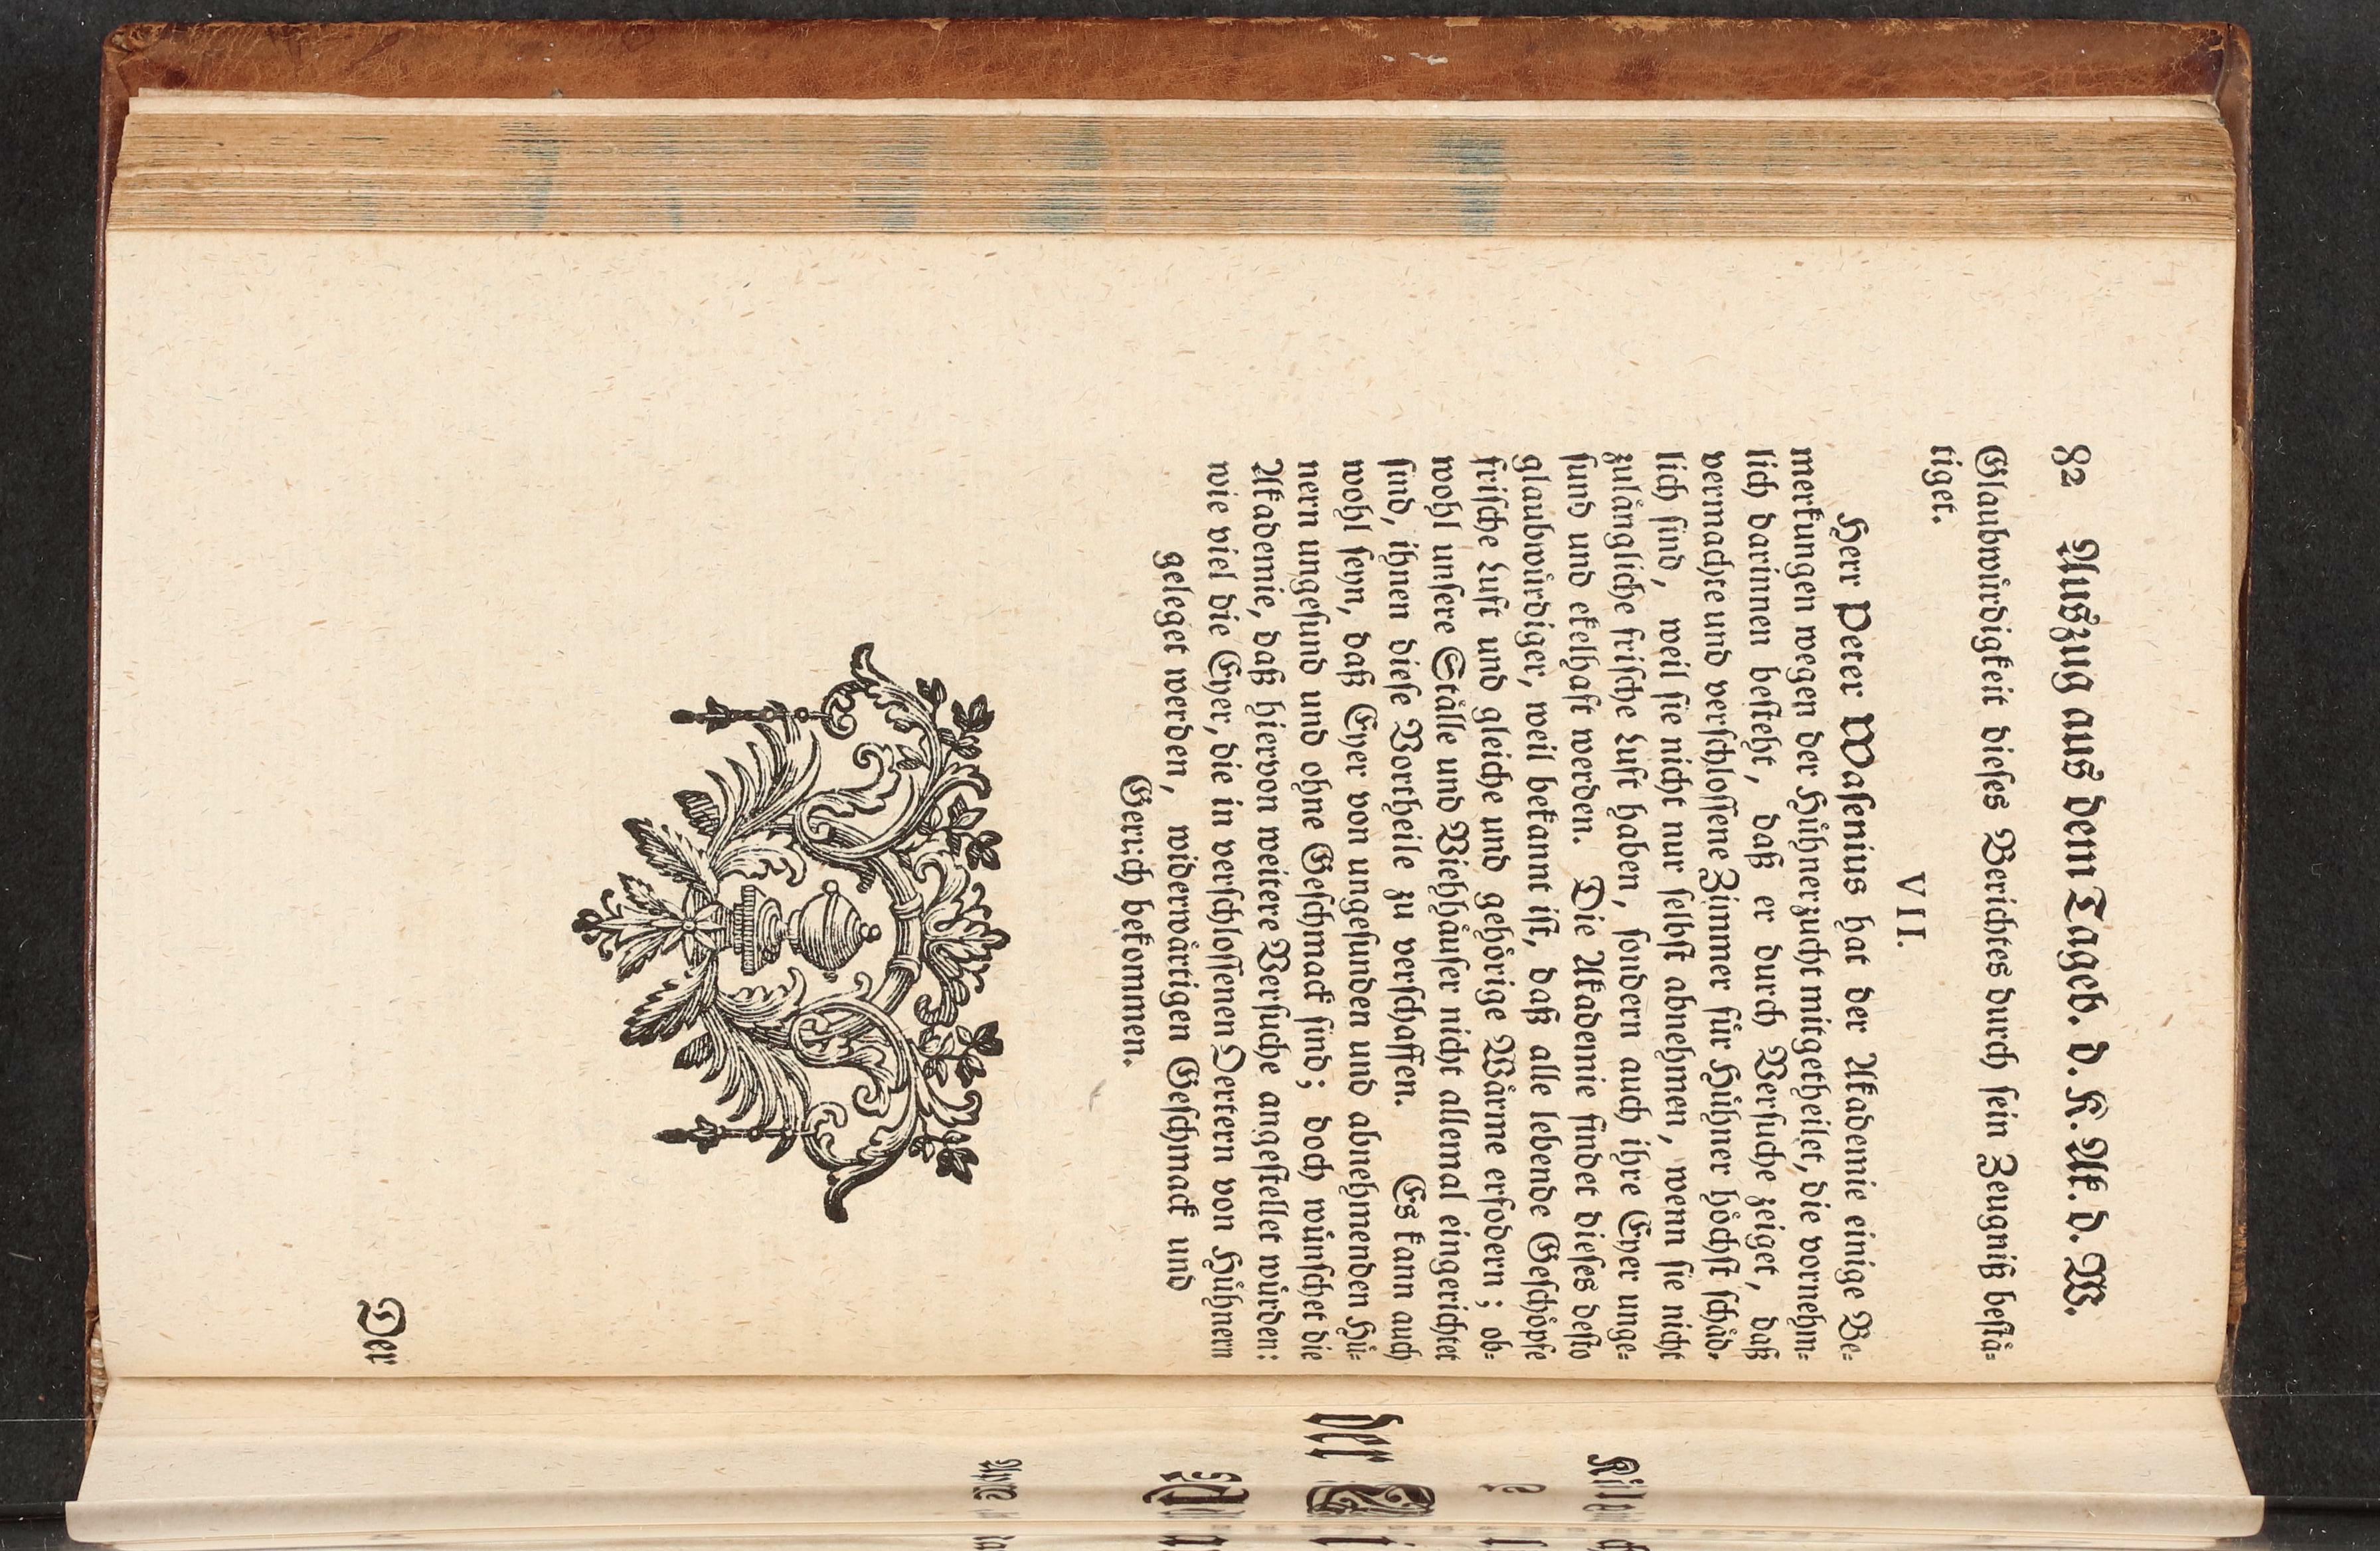 82 Auszug aus dem Tageb. d. K. Ak. d. W.
Glaubwürdigkeit dieses Berichtes durch sein Zeugniß bestä-
tiget.
VII.
Herr Peter Wasenius hat der Akademie einige Be-
merkungen wegen der Hühnerzucht mitgetheilet, die vornehm-
lich darinnen besteht, daß er durch Versuche zeiget, daß
vermachte und verschlossene Zimmer für Hühner höchst schäd-
lich sind, weil sie nicht nur selbst abnehmen, wenn sie nicht
zulängliche frische Luft haben, sondern auch ihre Eyer unge-
sund und ekelhaft werden. Die Akademie findet dieses desto
glaubwürdiger, weil bekannt ist, daß alle lebende Geschöpfe
frische Luft und gleiche und gehörige Wärme erfodern; ob-
wohl unsere Ställe und Viehhäuser nicht allemal eingerichtet
sind, ihnen diese Vortheile zu verschaffen. Es kann auch
wohl seyn, daß Eyer von ungesunden und abnehmenden Hü-
nern ungesund und ohne Geschmack sind; doch wünschet die
Akademie, daß hiervon weitere Versuche angestellet würden:
wie viel die Eyer, die in verschlossenen Oertern von Hühnern
geleget werden, widerwärtigen Geschmack und
Geruch bekommen.
Der
der